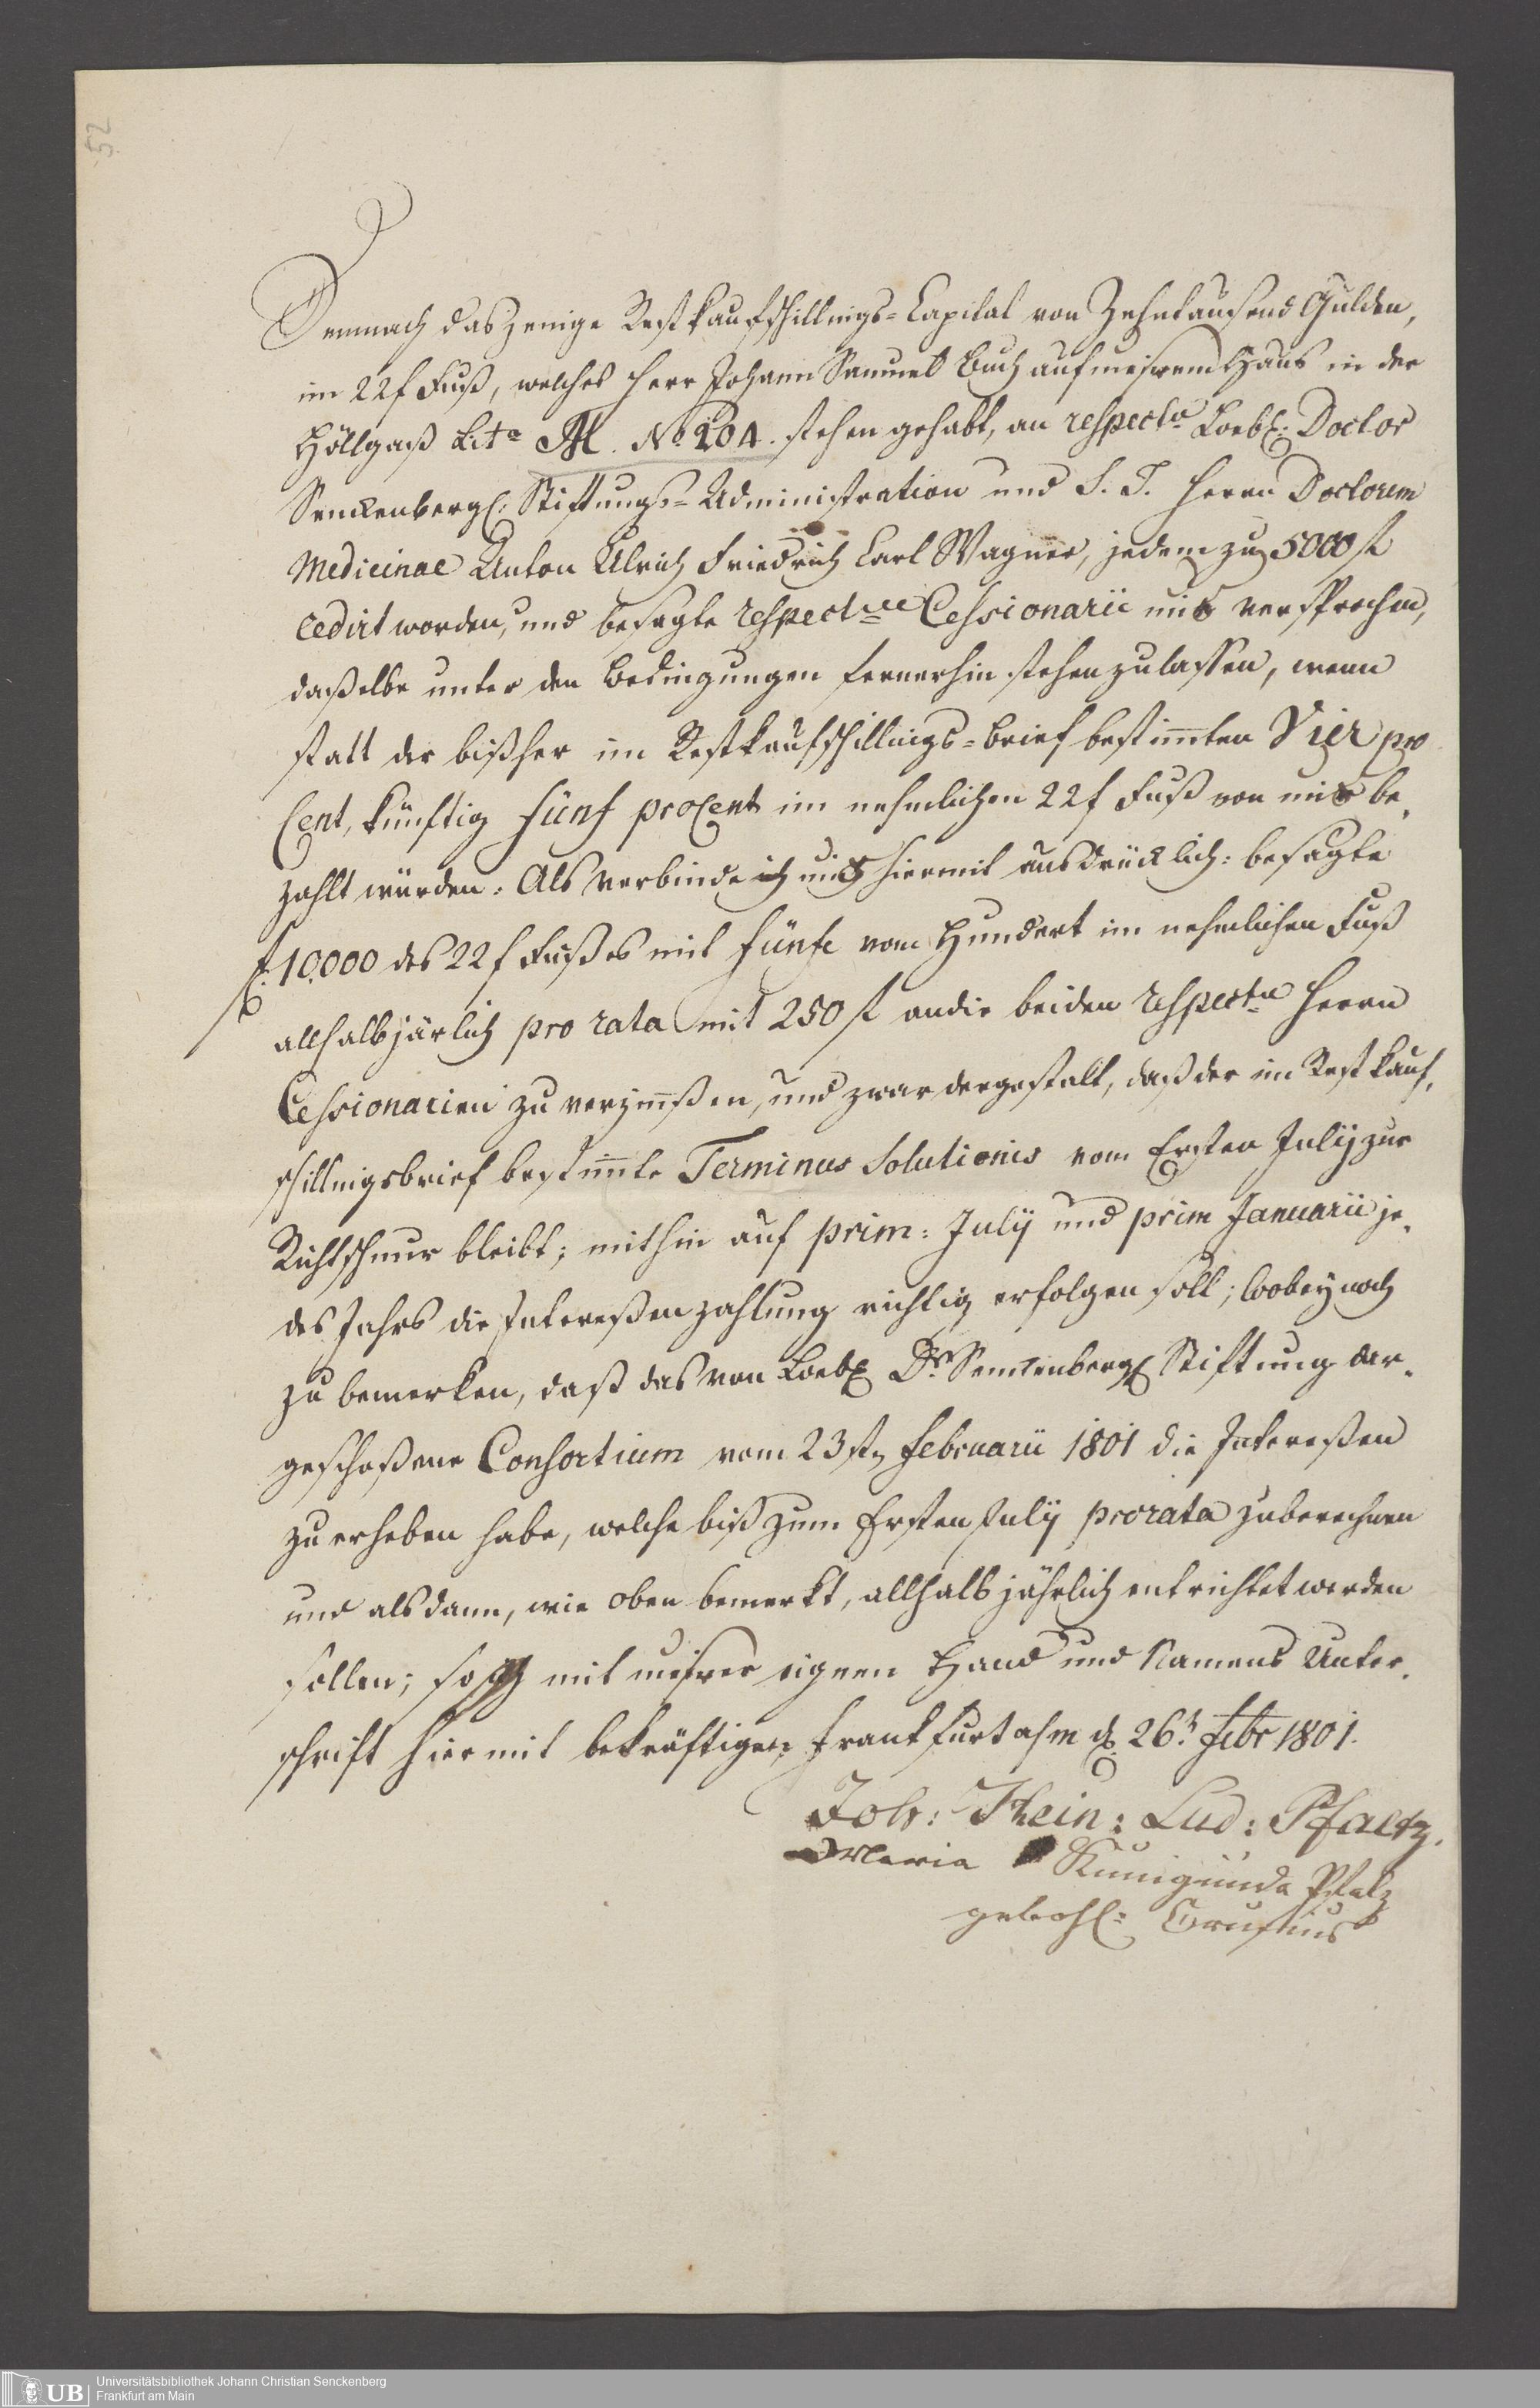 52
Demnach dasjenige Restkaufschillings-Capital von Zehntausend Gulden,
im 22f Fuß, welches Herr Johann Samuel Buch auf unserem Haus in der
Höllgaß Lit: M. No. 204. stehen gehabt, an respectve Loebl: Doctor
Senckenbergl: Stiftungs-Administration und S. T. Herrn Doctorem
Medicinae Anton Ulrich Friedrich Carl Wagner, jedem zu 5000 fl
cedirt worden, und besagte respectve Cessionarii uns versprochen,
daßelbe unter den Bedingungen fernerhin stehen zu lassen, wenn
statt der bißher im Restkaufschillings-brief bestimmten Vier pro
Cent, künftig fünf pro Cent im nehmlichen 22f Fuß von uns be-
zahlt würden: Als verbinde ich mich hiermit ausdrücklich: besagte
f. 10,000 des 22f Fußes mit fünfe vom Hundert im nehmlichen Fuß
allhalbjärlich pro rata mit 250 fl an die beiden respectve Herrn
Cessionarien zu verzinßen, und zwar dergestalt, daß der im Restkauf-
schillingsbrief bestimmte Terminus Solutionis vom Ersten July zur
Richtschnur bleibt; mithin auf prim: July und prim Januarii je-
des Jahrs die Interessenzahlung richtig erfolgen soll; wobey noch
zu bemerken, daß das von Loebl Dr. Senckenbergl Stiftung dar-
geschoßene Consortium vom 23stn Februarii 1801 die Intereßen
zu erheben habe, welche biß zum Ersten July pro rata zu berechnen
und alsdann, wie oben bemerkt, allhalbjährlich entrichtet werden
sollen; so mit unsrer eignen Hand und Namens Unter-
schrift hiermit bekräftigen Frankfurt a/m d. 26t Febr 1801.
Joh: Hein: Lud: Pfaltz.
Maria Kunigunda Pfalz
gebohl: Crusius
Universitätsbibliothek Johann Christian Senckenberg
UB Frankfurt am Main